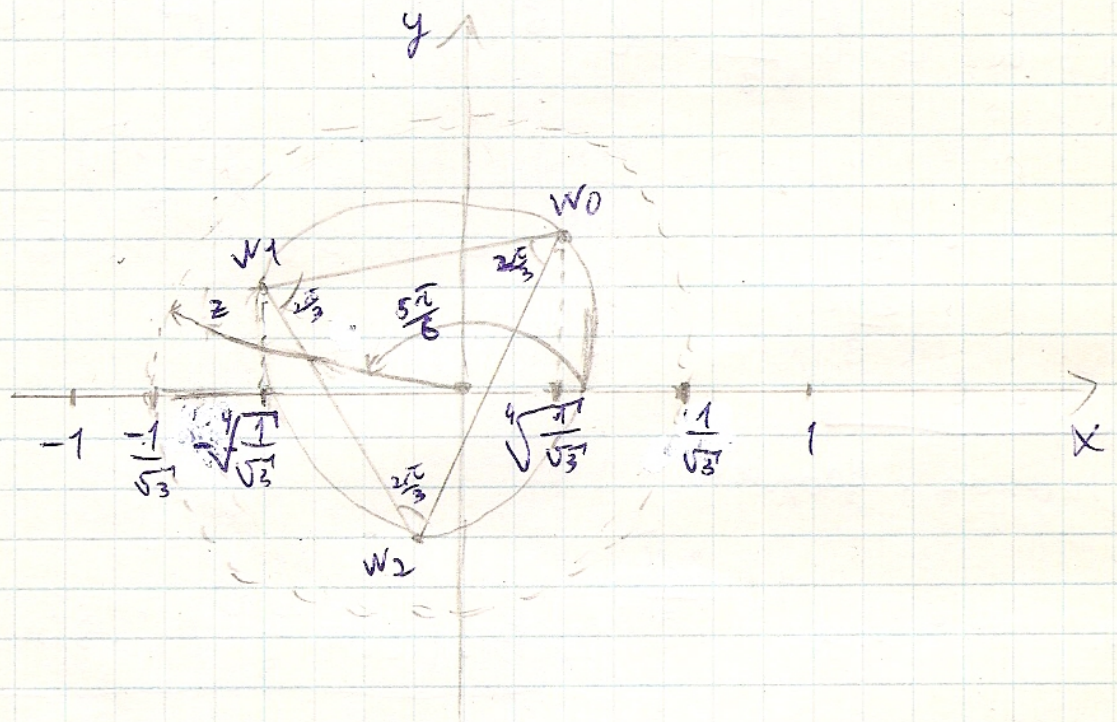 y
W0
W1
2π/3
2π/3
z
5π/6
-1
-1/√3
-∜(1/√3)
∜(1/√3)
1/√3
1
x
2π/3
W2